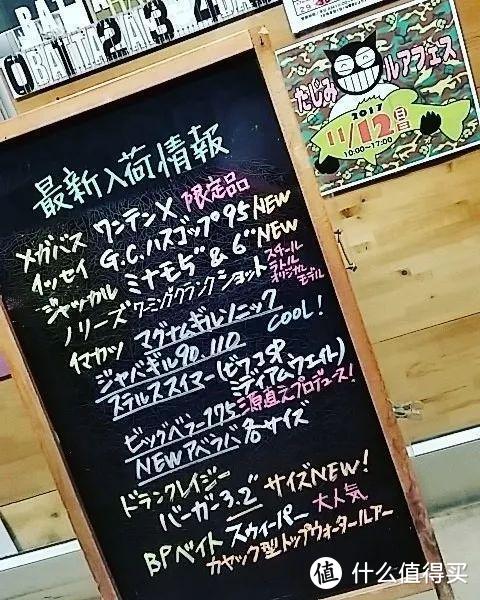 BATTA
0BATTA2A3ZBA
たじみ ルアフェス
2017
11/12日
10:00〜17:00
最新入荷情報
メガバス ワンテンX 限定品
イッセイ G.C.ハスゴップ95 NEW
ジャッカル ミナモ5"&6" NEW
ノリーズ ワーミングクランクショット スチールラトル オリジカルモデル
イマカツ マグナムギルソニック
ジャバギル90.110 COOL!
ステルススイマー(ビフコSP
ミディアムウェイト)
ビッグベラー775 三原直之プロデュース!
NEWアベラバ各サイズ
ドランクレイジー
バーガー3.2" サイズNEW!
BPベイト スウィーパー 大人気
カヤック型トップウォータールアー
値 什么值得买